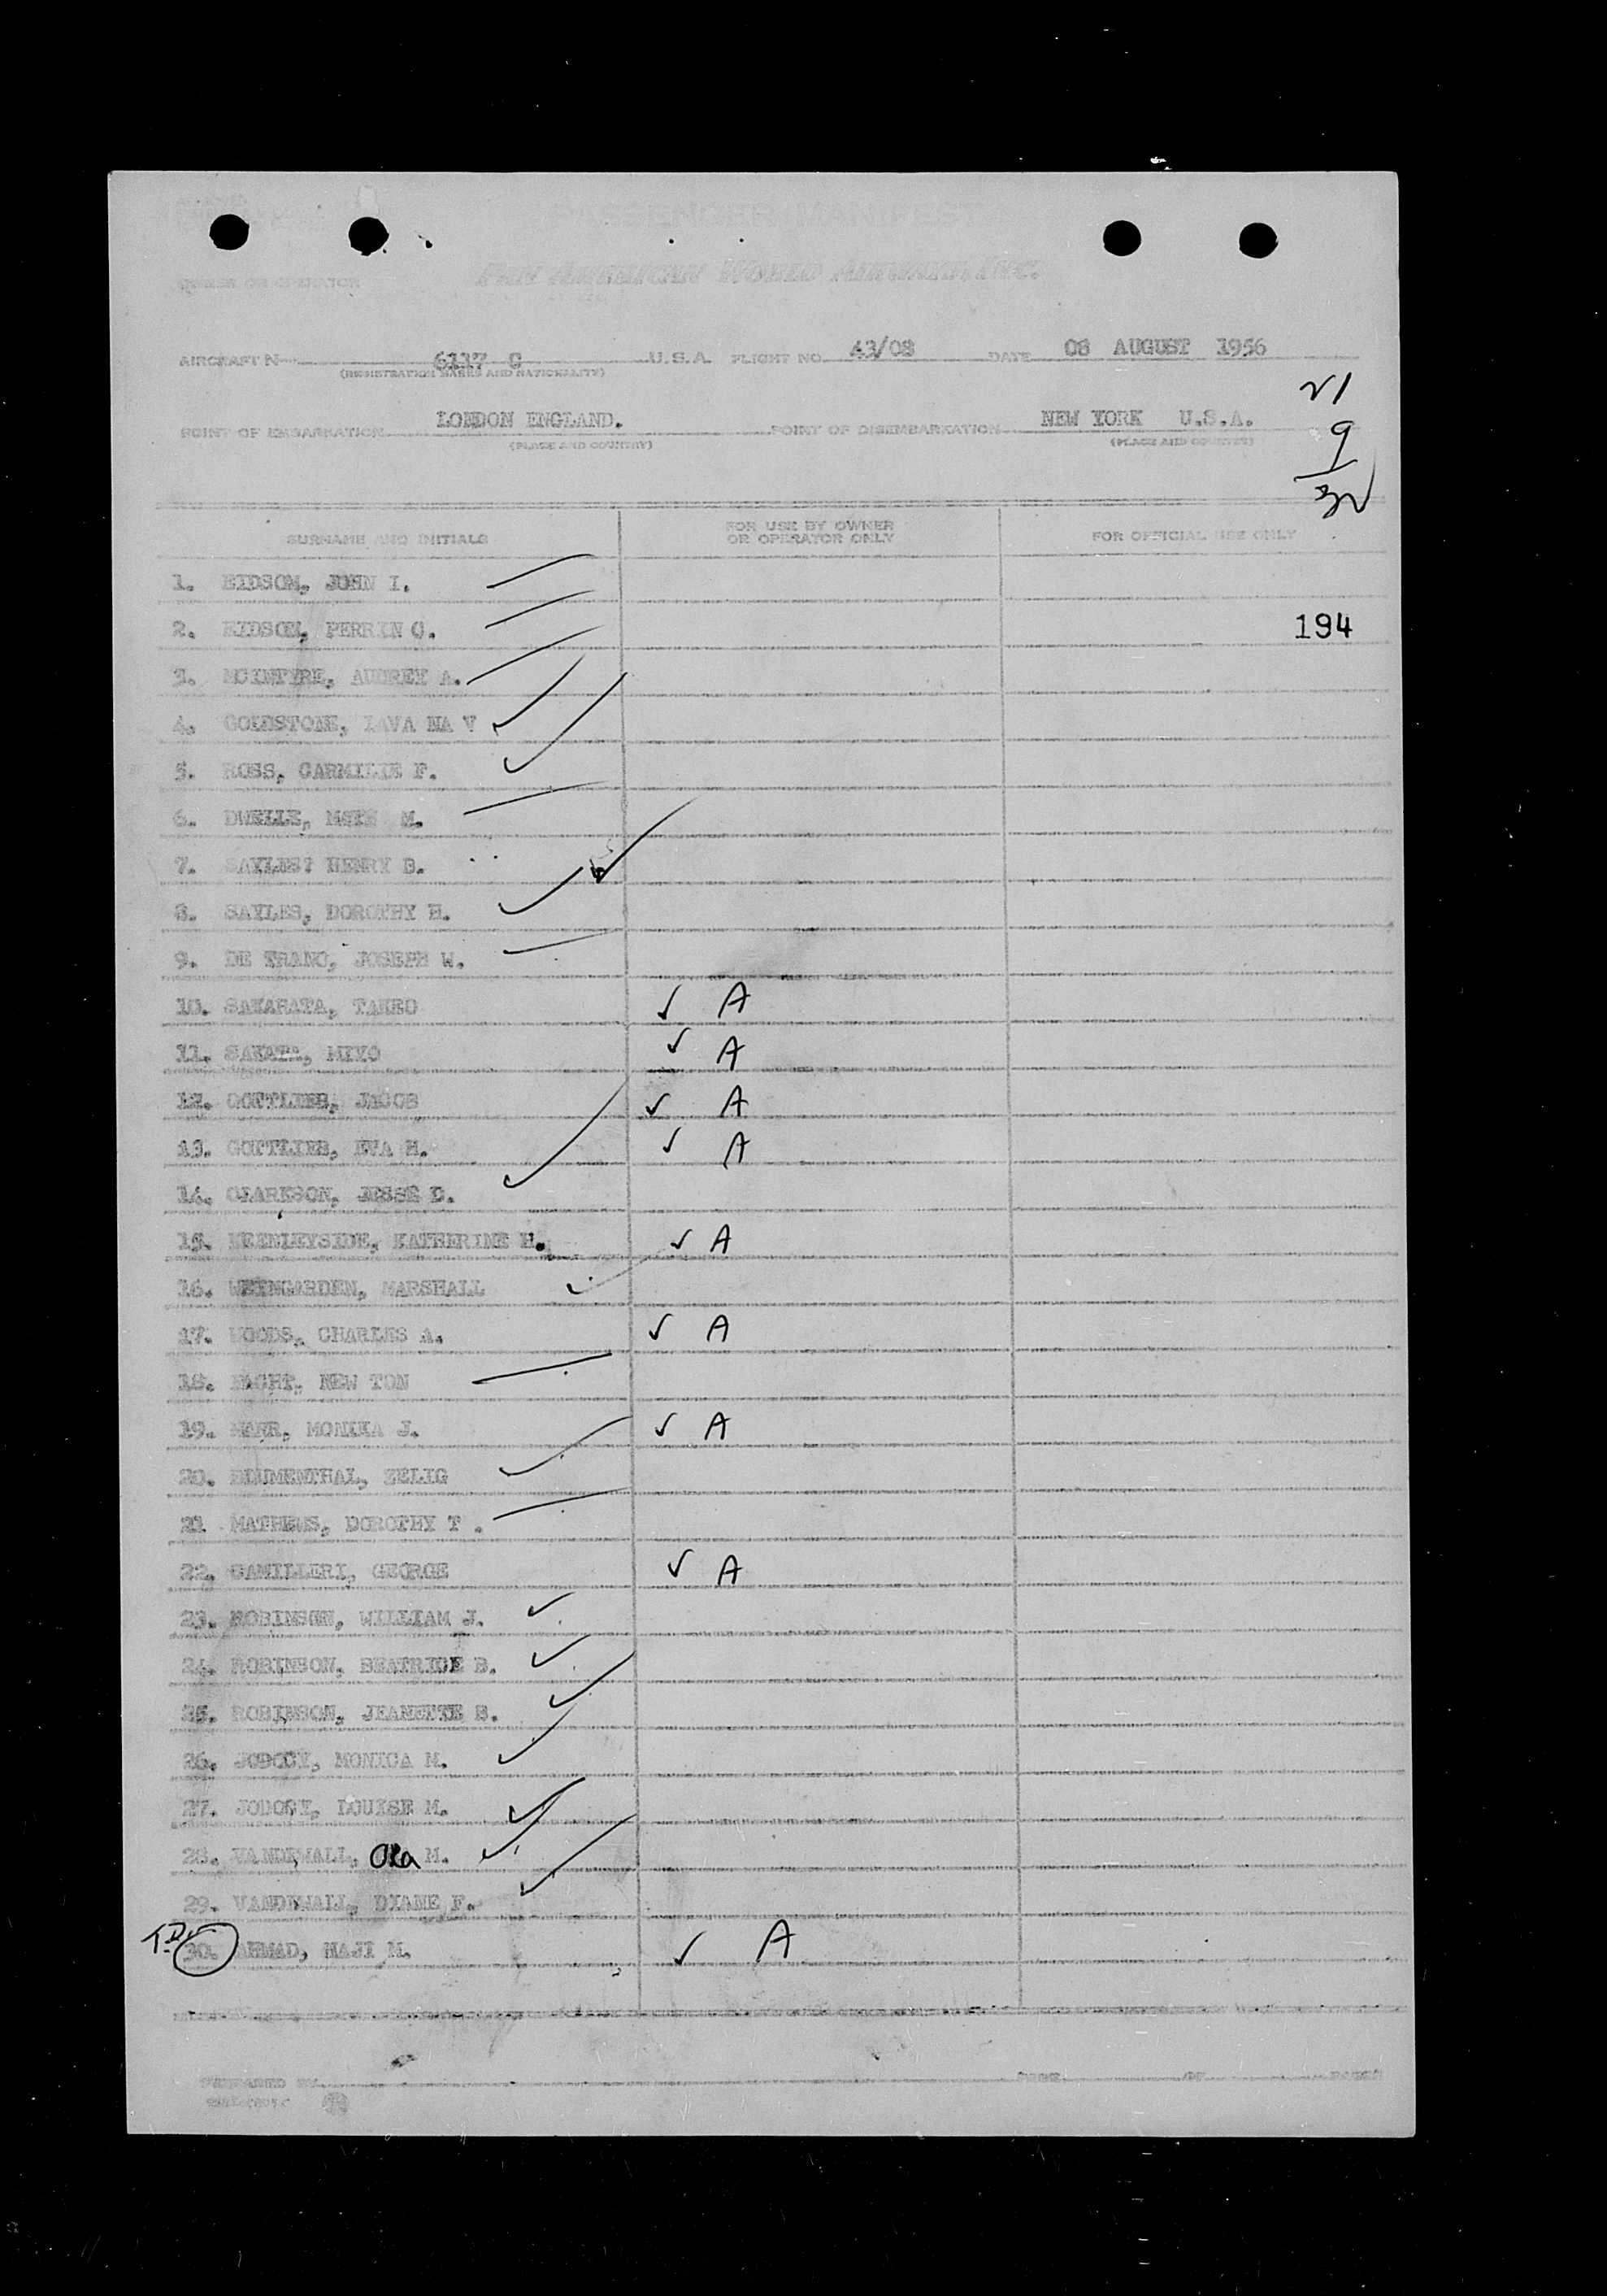 PASSENGER MANIFEST
OWNER OR OPERATOR PAN AMERICAN WORLD AIRWAYS, INC.
AIRCRAFT N 6117 C U.S.A. FLIGHT NO. 43/08 DATE 08 AUGUST 1956
(REGISTRATION MARKS AND NATIONALITY)
21
POINT OF EMBARKATION LONDON ENGLAND. POINT OF DISEMBARKATION NEW YORK U.S.A.
(PLACE AND COUNTRY) (PLACE AND COUNTRY)
9
SURNAME AND INITIALS FOR USE BY OWNER OR OPERATOR ONLY FOR OFFICIAL USE ONLY
1. EIDSON, JOHN I.
2. EIDSON, PERRIN O. 194
3. MCINTYRE, AUDREY A.
4. GOLDSTONE, LAVA NA V
5. ROSS, CARMILIE F.
6. DWELLE, M.
7. SAYLES? HENRY B.
8. SAYLES, DOROTHY H.
9. DE TRANO, JOSEPH W.
10. SAKAFATA, TAKEO ✓ A
11. SAKATA, MIYO ✓ A
12. GOTTLIEB, JACOB ✓ A
13. GOTTLIEB, EVA H. ✓ A
14. CLARKSON, JESSE D.
15. KEENLEYSIDE, KATHERINE H. ✓ A
16. WEINGARDEN, MARSHALL
17. WOODS, CHARLES A. ✓ A
18. NEW TON
19. MARR, MONIKA J. ✓ A
20. BLUMENTHAL, ZELIG
21 MATHEWS, DOROTHY T .
22. CAMILLERI, GEORGE ✓ A
23. ROBINSON, WILLIAM J.
24. ROBINSON, BEATRICE B.
25. ROBINSON, JEANETTE B.
26. JODOGY, MONICA M.
27. JODOGY, LOUISE M.
28. VANDEWALL, M.
29. VANDEWALL, DIANE F.
30. AHMAD, HAJI M. ✓ A
PREPARED BY PAGE OF PAGES